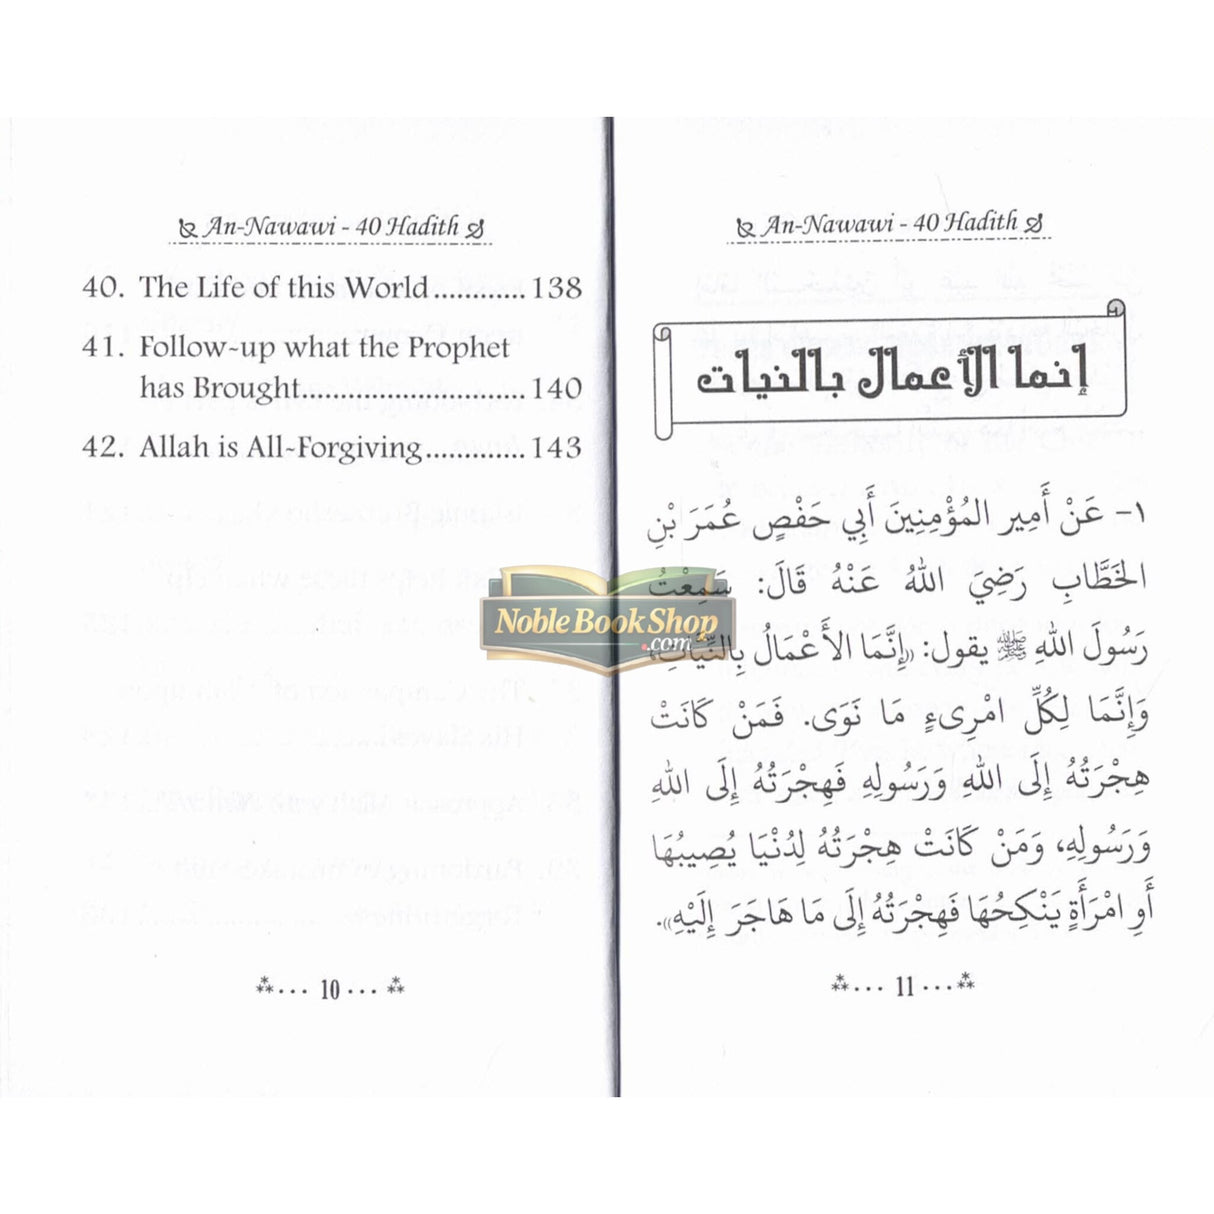 An-Nawawi - 40 Hadith
40. The Life of this World............138
41. Follow-up what the Prophet
has Brought.............................140
42. Allah is All-Forgiving.............143
10
An-Nawawi - 40 Hadith
إنما الأعمال بالنيات
١- عَنْ أَمِيرِ المُؤْمِنِينَ أَبِي حَفْصٍ عُمَرَ بْنِ
الخَطَّابِ رَضِيَ اللهُ عَنْهُ قَالَ: سَمِعْتُ
رَسُولَ اللهِ ﷺ يقول: «إِنَّمَا الأَعْمَالُ بِالنِّيَّاتِ،
وَإِنَّمَا لِكُلِّ امْرِىءٍ مَا نَوَى. فَمَنْ كَانَتْ
هِجْرَتُهُ إِلَى اللهِ وَرَسُولِهِ فَهِجْرَتُهُ إِلَى اللهِ
وَرَسُولِهِ، وَمَنْ كَانَتْ هِجْرَتُهُ لِدُنْيَا يُصِيبُهَا
أَوِ امْرَأَةٍ يَنْكِحُهَا فَهِجْرَتُهُ إِلَى مَا هَاجَرَ إِلَيْهِ».
11
Noble Book Shop
.com